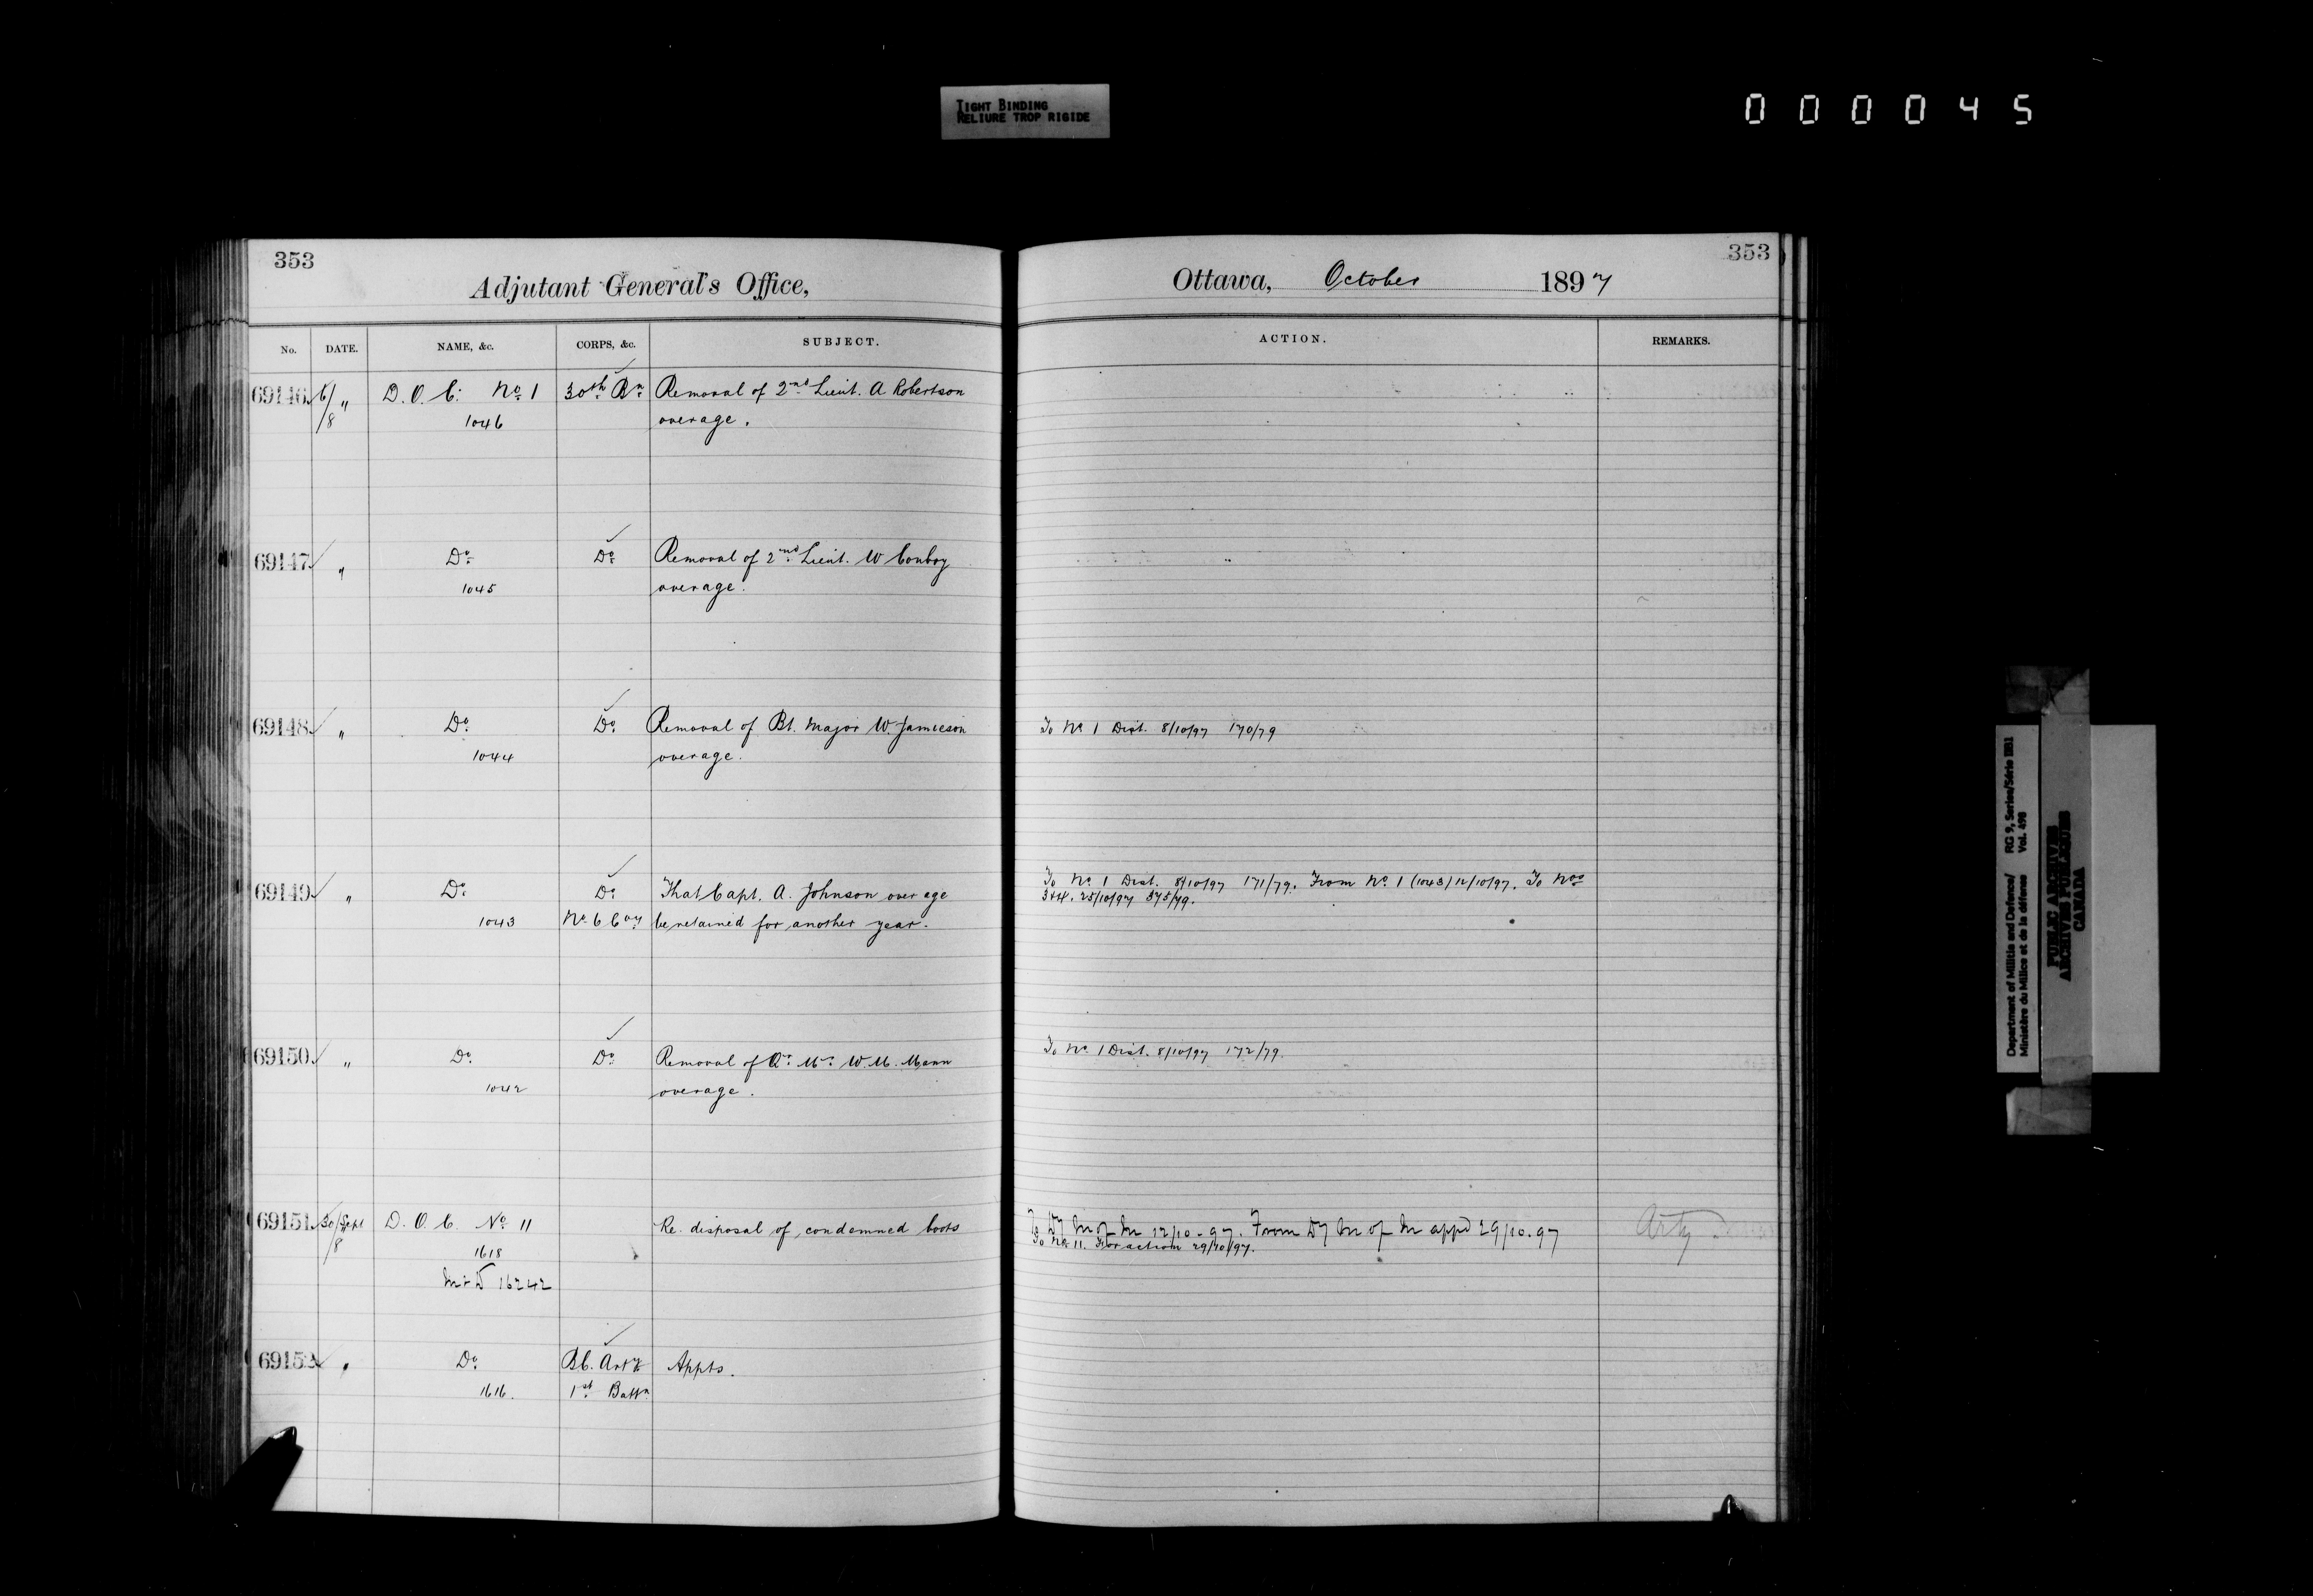 TIGHT BINDING
RELIURE TROP RIGIDE
000045
353
Adjutant General's Office,
No. DATE. NAME, &c. CORPS, &c. SUBJECT.
69146 6/8 " D.O.C. No 1 30th Bn Removal of 2nd Lieut. A Robertson
1046 overage.
69147 " Do Do Removal of 2nd Lieut. W Conboy
1045 overage.
69148 " Do Do Removal of Bt. Major W. Jamieson
1044 overage.
69149 " Do Do That Capt. A. Johnson over age
1043 No 6 Coy be retained for another year.
69150 " Do Do Removal of Qr. Mr. W. M. Mann
1042 overage.
69151 30/8 Sept D.O.C. No 11 Re. disposal of condemned boots
1618
M & D 16242
69152 " Do B.C. Arty Appts.
1616. 1st Battn
353
Ottawa, October 1897
ACTION. REMARKS.
To No 1 Dist. 8/10/97 170/79
To No 1 Dist. 8/10/97 171/79. From No 1 (1043) 12/10/97. To Nos
3+4. 25/10/97 375/79.
To No 1 Dist. 8/10/97 172/79.
To Dy M of M 12/10-97. From Dy M of M appd 29/10.97 Arty
To No 11. For action 29/10/97.
Department of Militia and Defence/ RG 9, Series/Série IIB1
Ministère du Milice et de la défense Vol. 498
PUBLIC ARCHIVES
ARCHIVES PUBLIQUES
CANADA